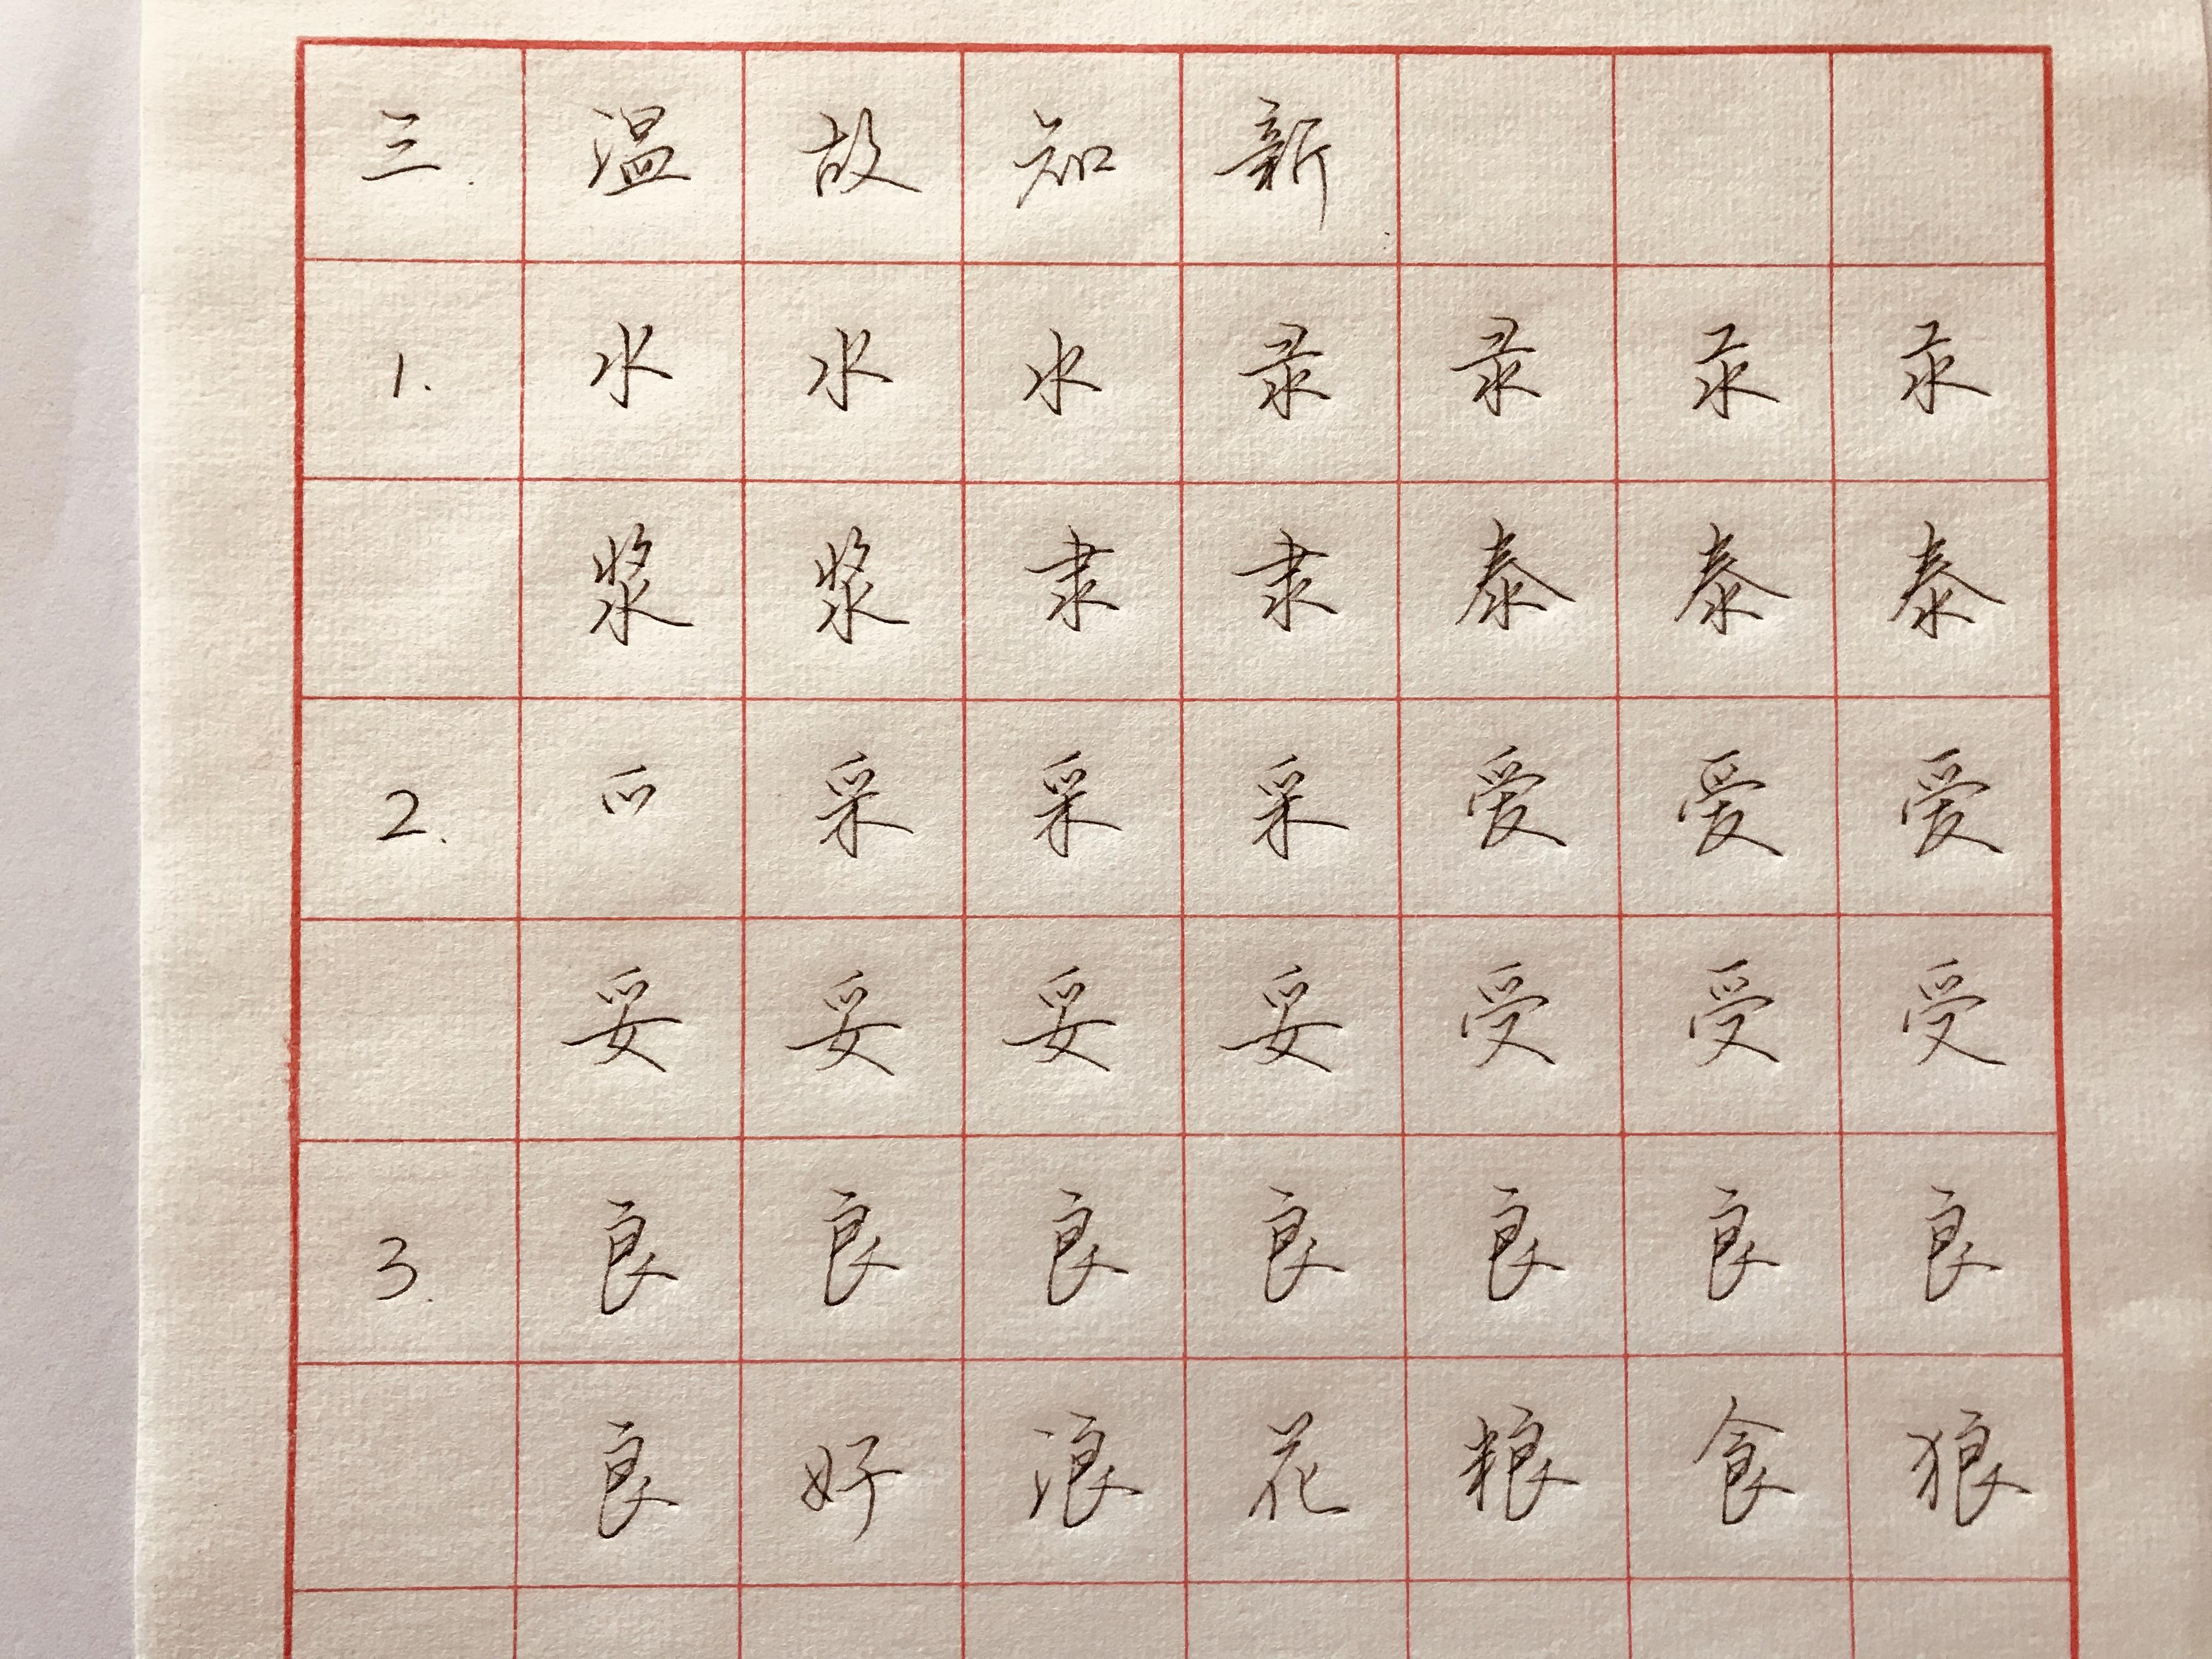 三. 温故知新
1. 水水水录录汞汞
浆浆隶隶泰泰泰
2. 爫采采采爱爱爱
妥妥妥妥受受受
3. 良良良良良良良
良好浪花粮食狼